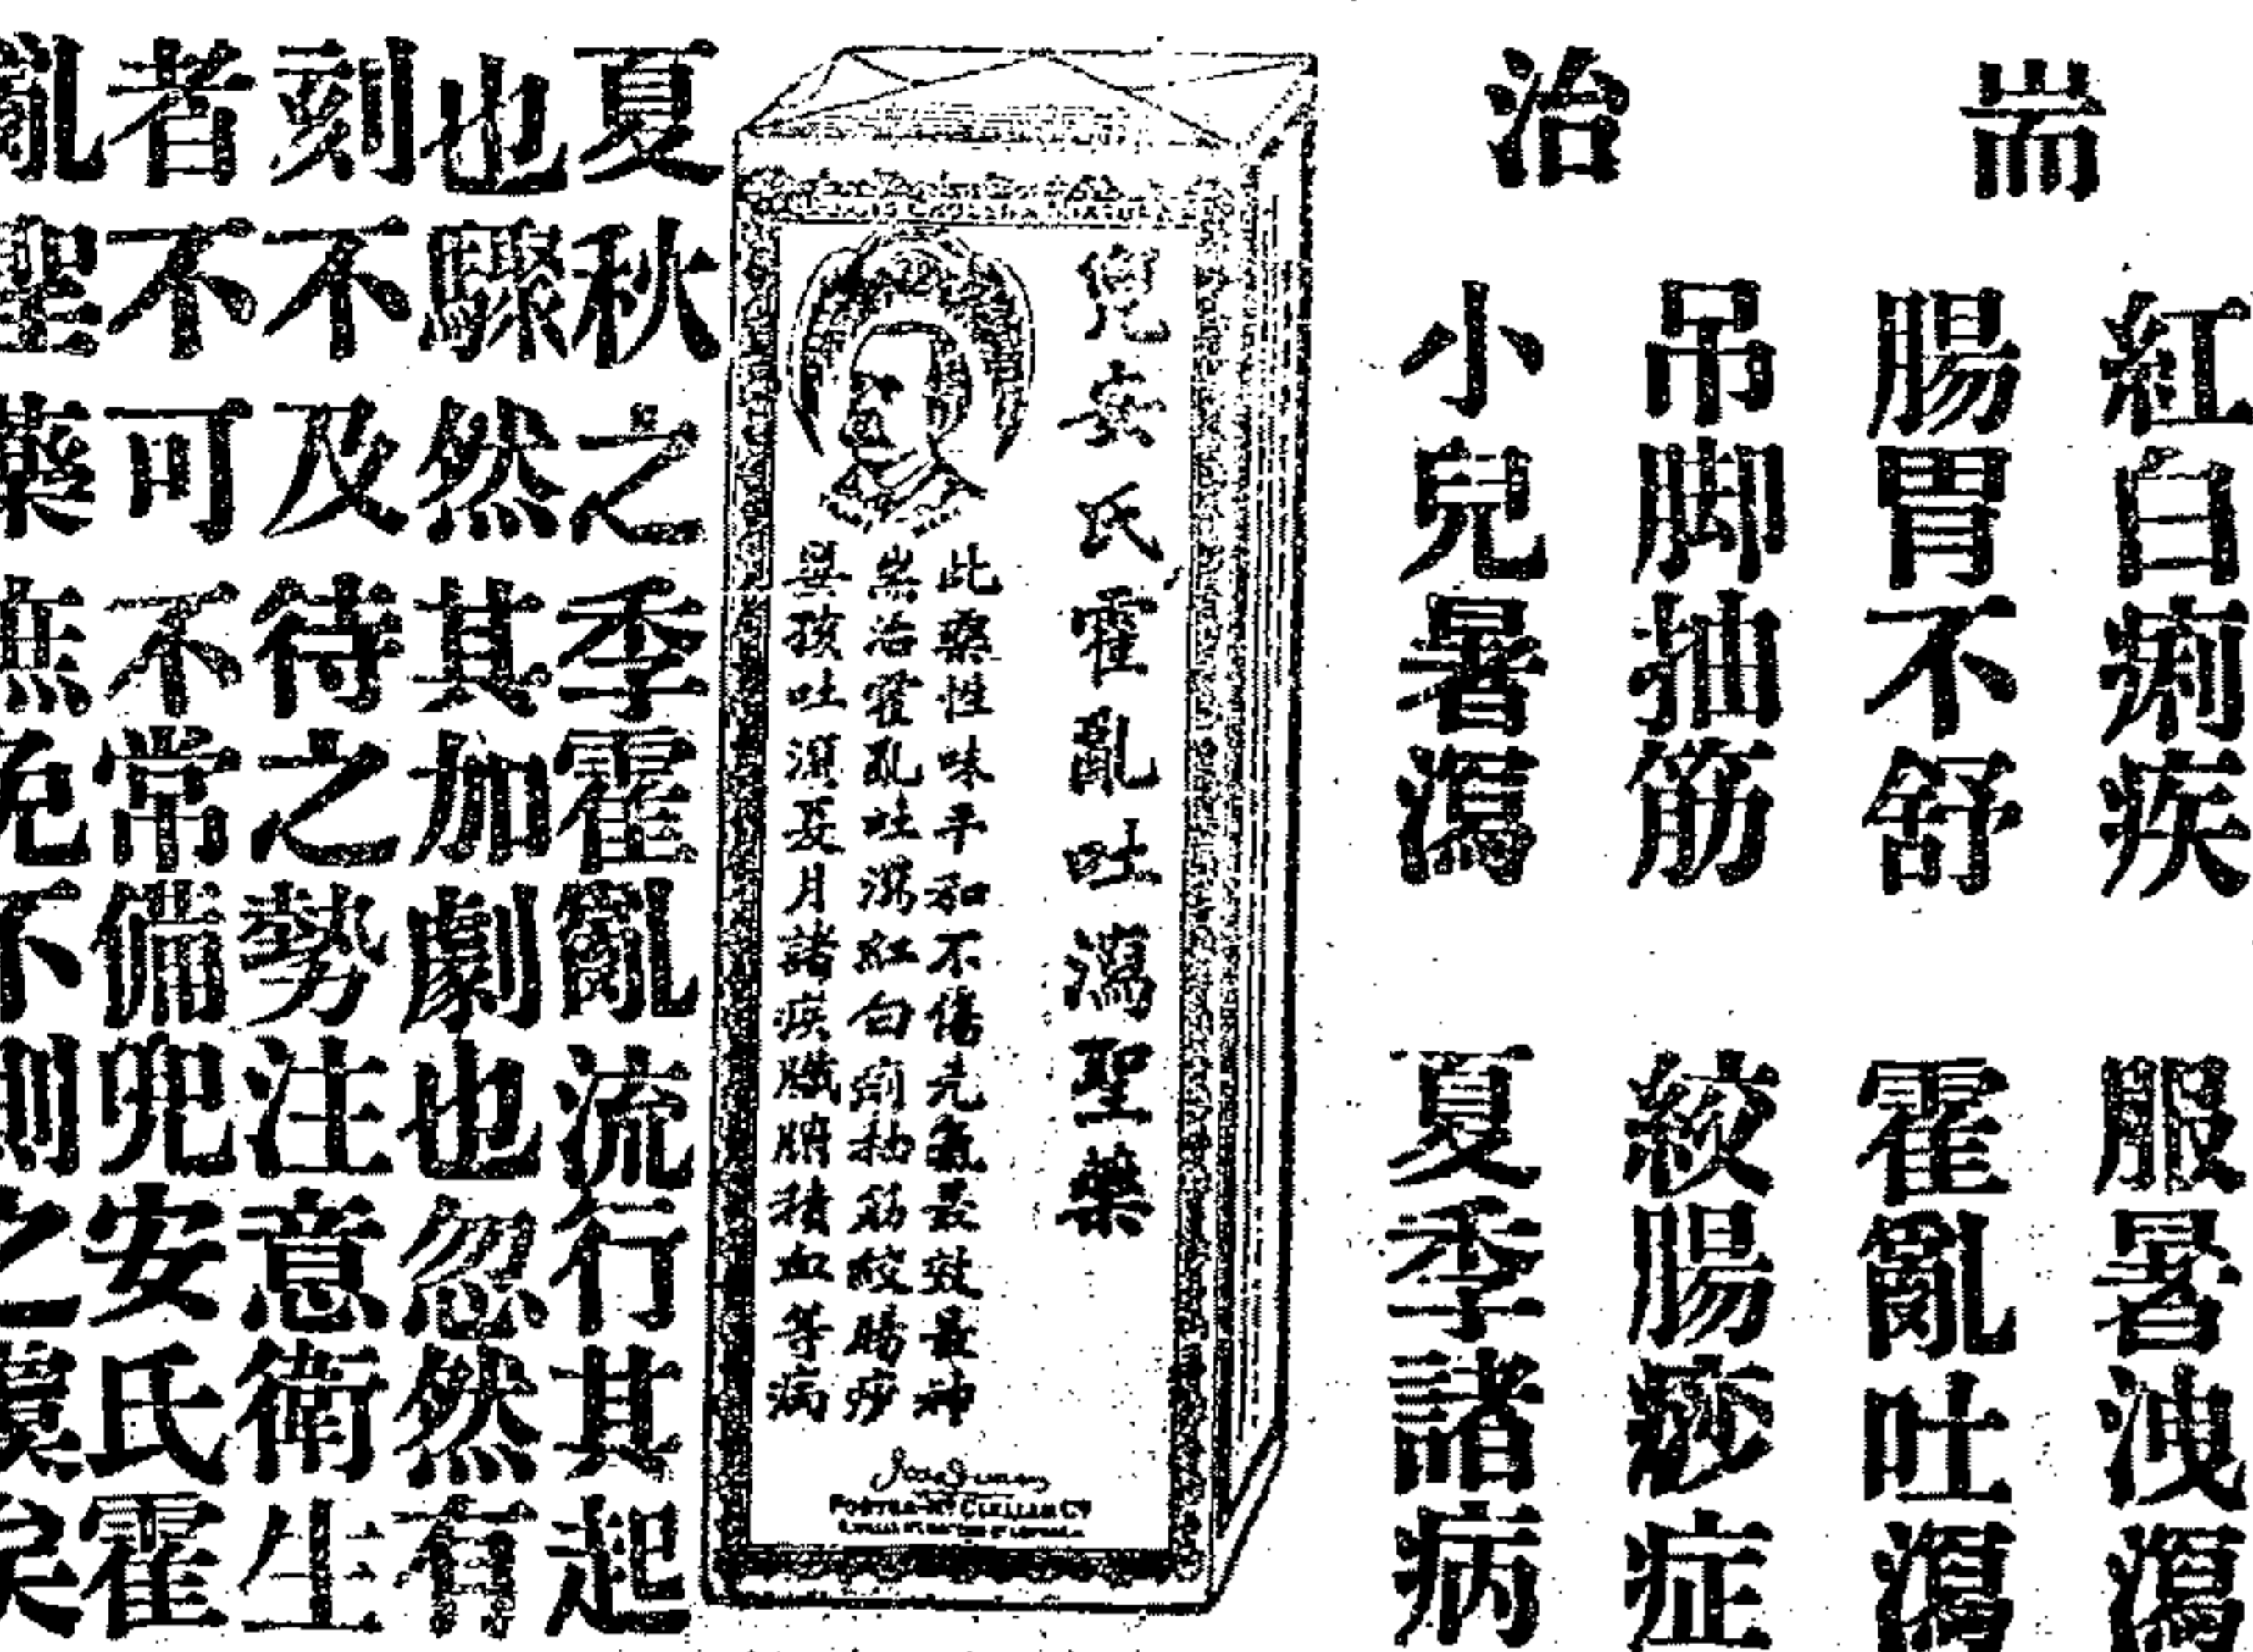 耑治
紅白痢疾 服暑洩瀉
腸胃不舒 霍亂吐瀉
吊脚抽筋 絞腸痧症
小兒暑瀉 夏季諸病
兜安氏霍亂吐瀉聖藥
此藥性味平和不傷元氣最效最神
耑治霍亂吐瀉紅白痢抽筋絞腸痧
嬰孩吐瀉夏月諸疾臟腑積血等病
FOSTER-McCLELLAN Co
夏秋之季霍亂流行其起
也驟然其加劇也忽然有
刻不及待之勢注意衛生
者不可不常備兜安氏霍
亂聖藥庶免不測之虞矣